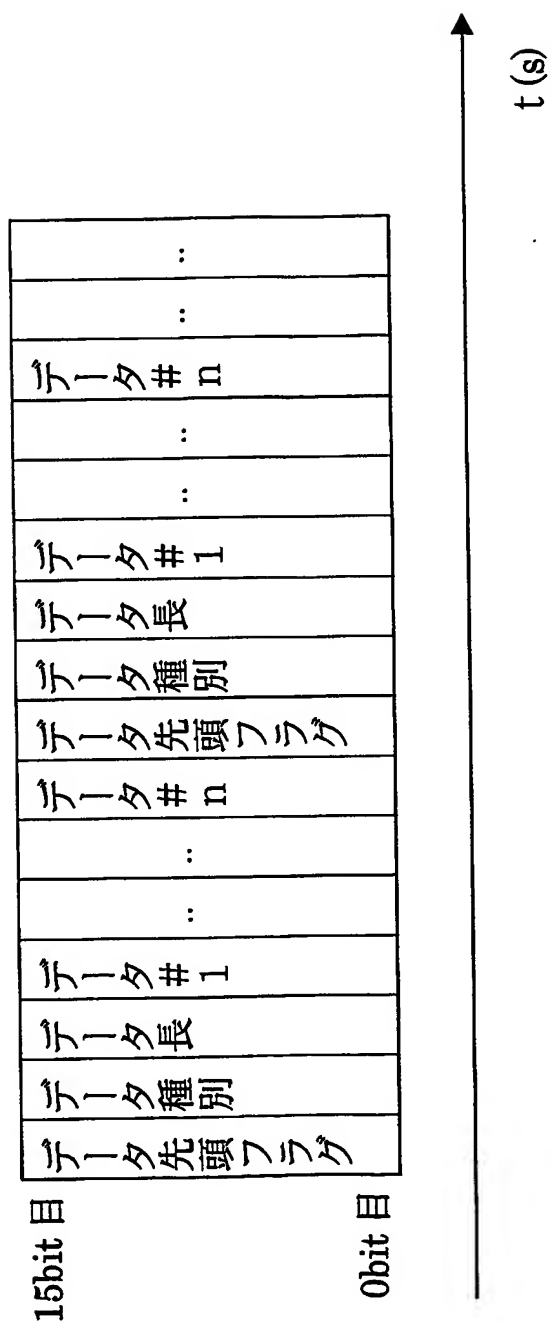 15bit 目
0bit 目
データ先頭フラグ
データ種別
データ長
データ# 1
..
..
データ# n
データ先頭フラグ
データ種別
データ長
データ# 1
..
..
データ# n
..
..
t (s)